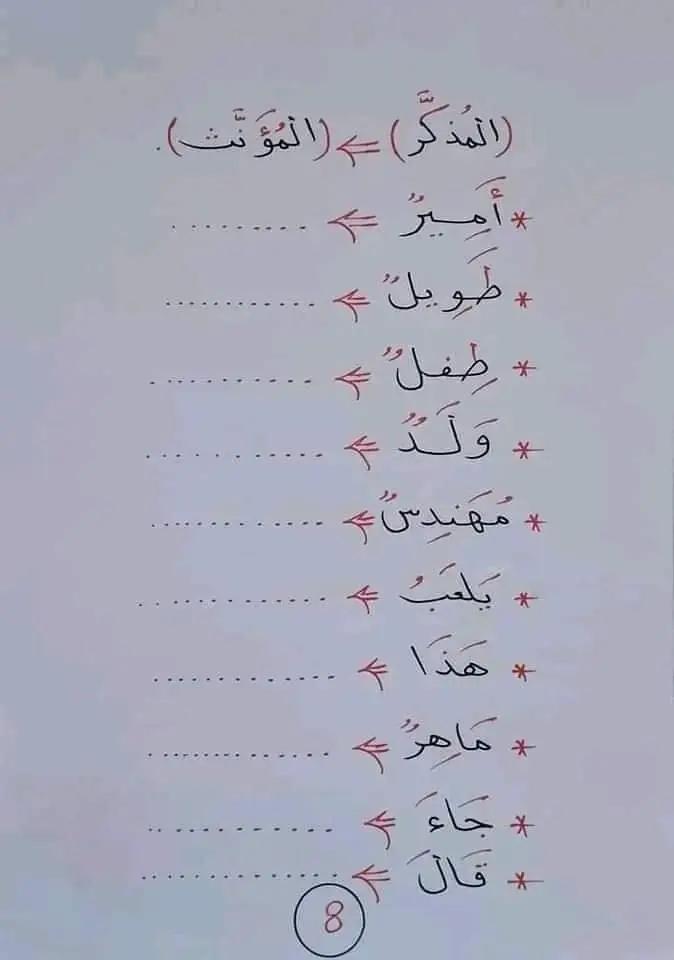 (المُذَكَّر) ⇐ (المُؤَنَّث).
* أَمِيرٌ ⇐ ..........
* طَوِيلٌ ⇐ ............
* طِفلٌ ⇐ ............
* وَلَدٌ ⇐ ............
* مُهَندِسٌ ⇐ ............
* يَلعَبُ ⇐ ............
* هَذَا ⇐ ............
* مَاهِرٌ ⇐ ............
* جَاءَ ⇐ ............
* قَالَ ⇐ ............
8